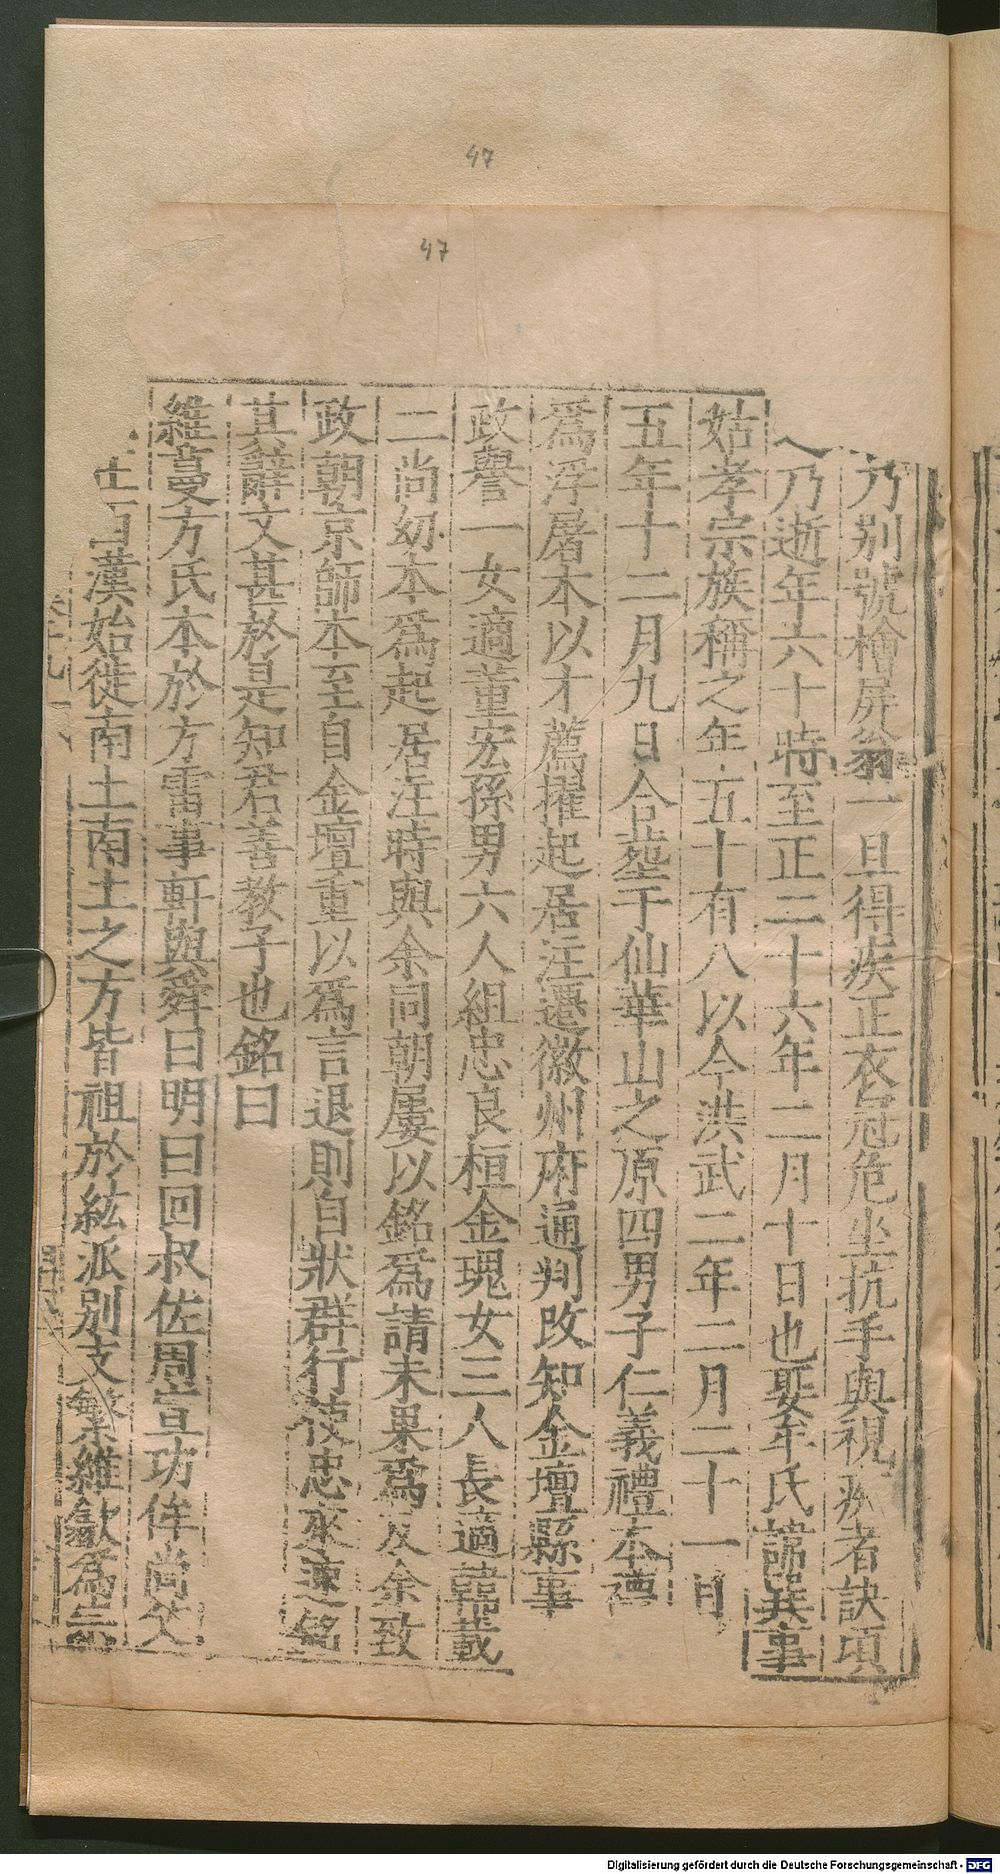 47
47
乃別號檜屏翁一旦得疾正衣冠危坐抗手與視疾者訣項
乃逝年六十時至正二十六年二月十日也娶年氏諱其事
姑孝宗族稱之年五十有八以今洪武二年二月二十一
五年十二月九日合塟于仙華山之原四男子仁義禮本
為浮屠本以才薦擢起居注遷徽州府通判改知金壇縣事
政譽一女適董宏孫男六人組忠良桓金瑰女三人長適韓載
二尚幼本為起居注時與余同朝屢以銘為請未果為及余致
政朝京師本至自金壇重以為言退則自狀群行使忠來速銘
其辭文甚於是知君善教子也銘曰
維蔓方氏本於方雷事軒與舜曰明曰回叔佐周宣功侔尚父
漢始徙南土南土之方皆祖於紘派別支繁維歙為
Digitalisierung gefördert durch die Deutsche Forschungsgemeinschaft - DFG